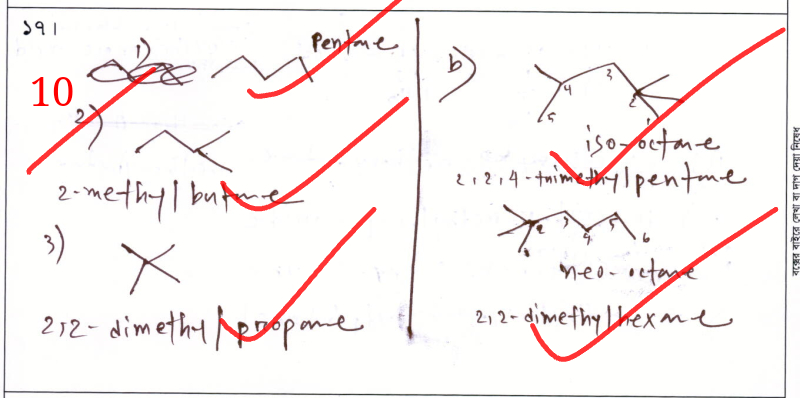 ১৭।
1)
Pentane
10
2)
2-methyl butane
3)
2,2-dimethyl propane
b)
4 3 2
5 1
iso-octane
2,2,4-trimethyl pentane
2 3 4 5 6
1
neo-octane
2,2-dimethyl hexane
বক্সের বাইরে লেখা বা দাগ দেয়া নিষেধ